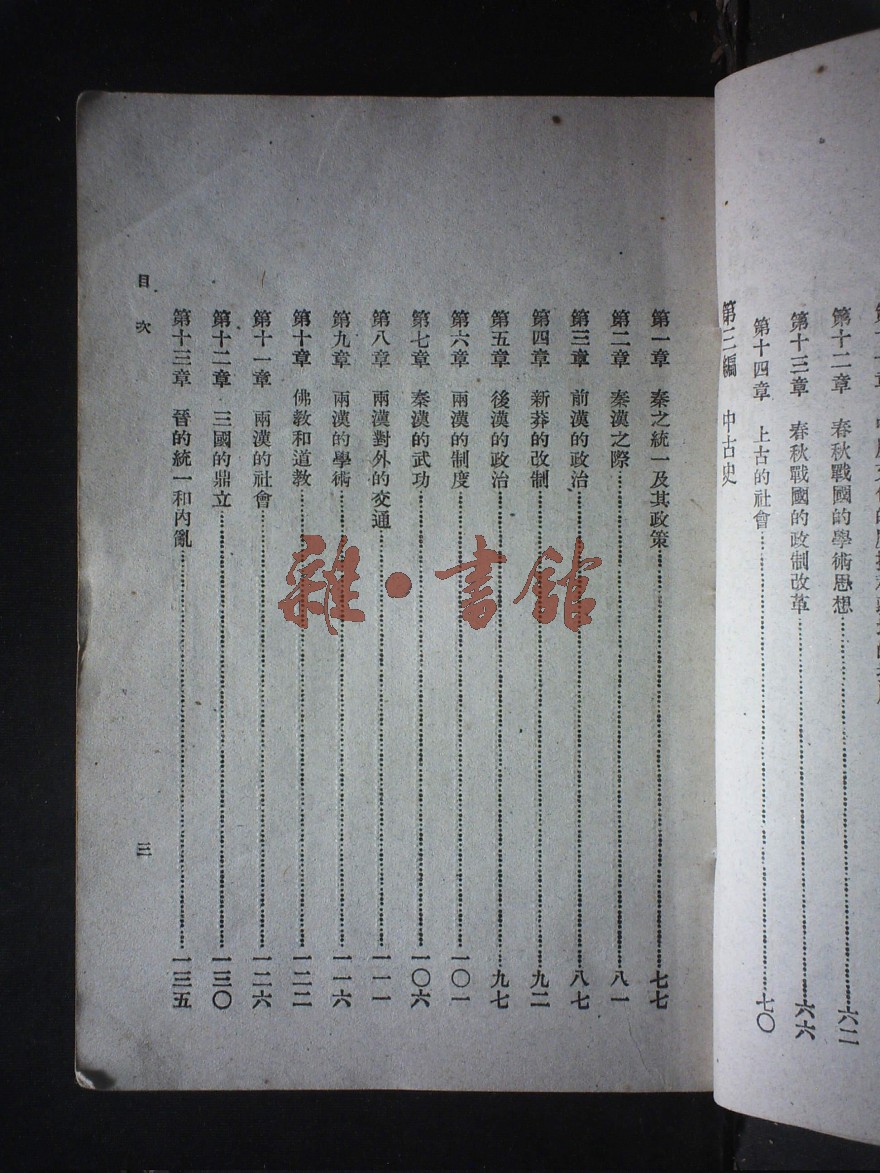 第十二章　春秋戰國的學術思想……六二
第十三章　春秋戰國的政制改革……六六
第十四章　上古的社會……七〇
第三編　中古史
第一章　秦之統一及其政策……七七
第二章　秦漢之際……八一
第三章　前漢的政治……八七
第四章　新莽的改制……九二
第五章　後漢的政治……九七
第六章　兩漢的制度……一〇一
第七章　秦漢的武功……一〇六
第八章　兩漢對外的交通……一一一
第九章　兩漢的學術……一一六
第十章　佛教和道教……一二二
第十一章　兩漢的社會……一二六
第十二章　三國的鼎立……一三〇
第十三章　晉的統一和內亂……一三五
目次
三
雜·書館